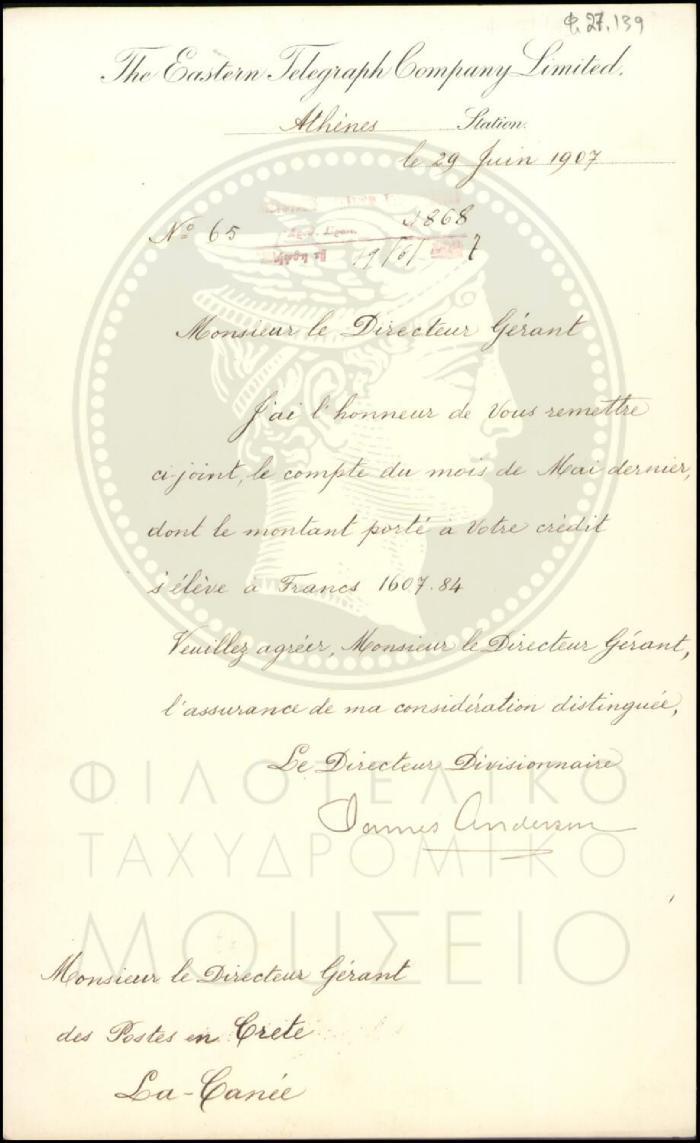 Φ. 27.139
The Eastern Telegraph Company Limited.
Athènes Station.
le 29 Juin 1907
Nº 65
868
19/6/ 7
Monsieur le Directeur Gérant
J'ai l'honneur de Vous remettre
ci-joint, le compte du mois de Mai dernier,
dont le montant porté à Votre crédit
s'élève à Francs 1607.84
Veuillez agréer, Monsieur le Directeur Gérant,
l'assurance de ma considération distinguée,
Le Directeur Divisionnaire
James Anderson
ΦΙΛΟΤΕΛΙΚΟ
ΤΑΧΥΔΡΟΜΙΚΟ
ΜΟΥΣΕΙΟ
Monsieur le Directeur Gérant
des Postes en Crète
La-Canée